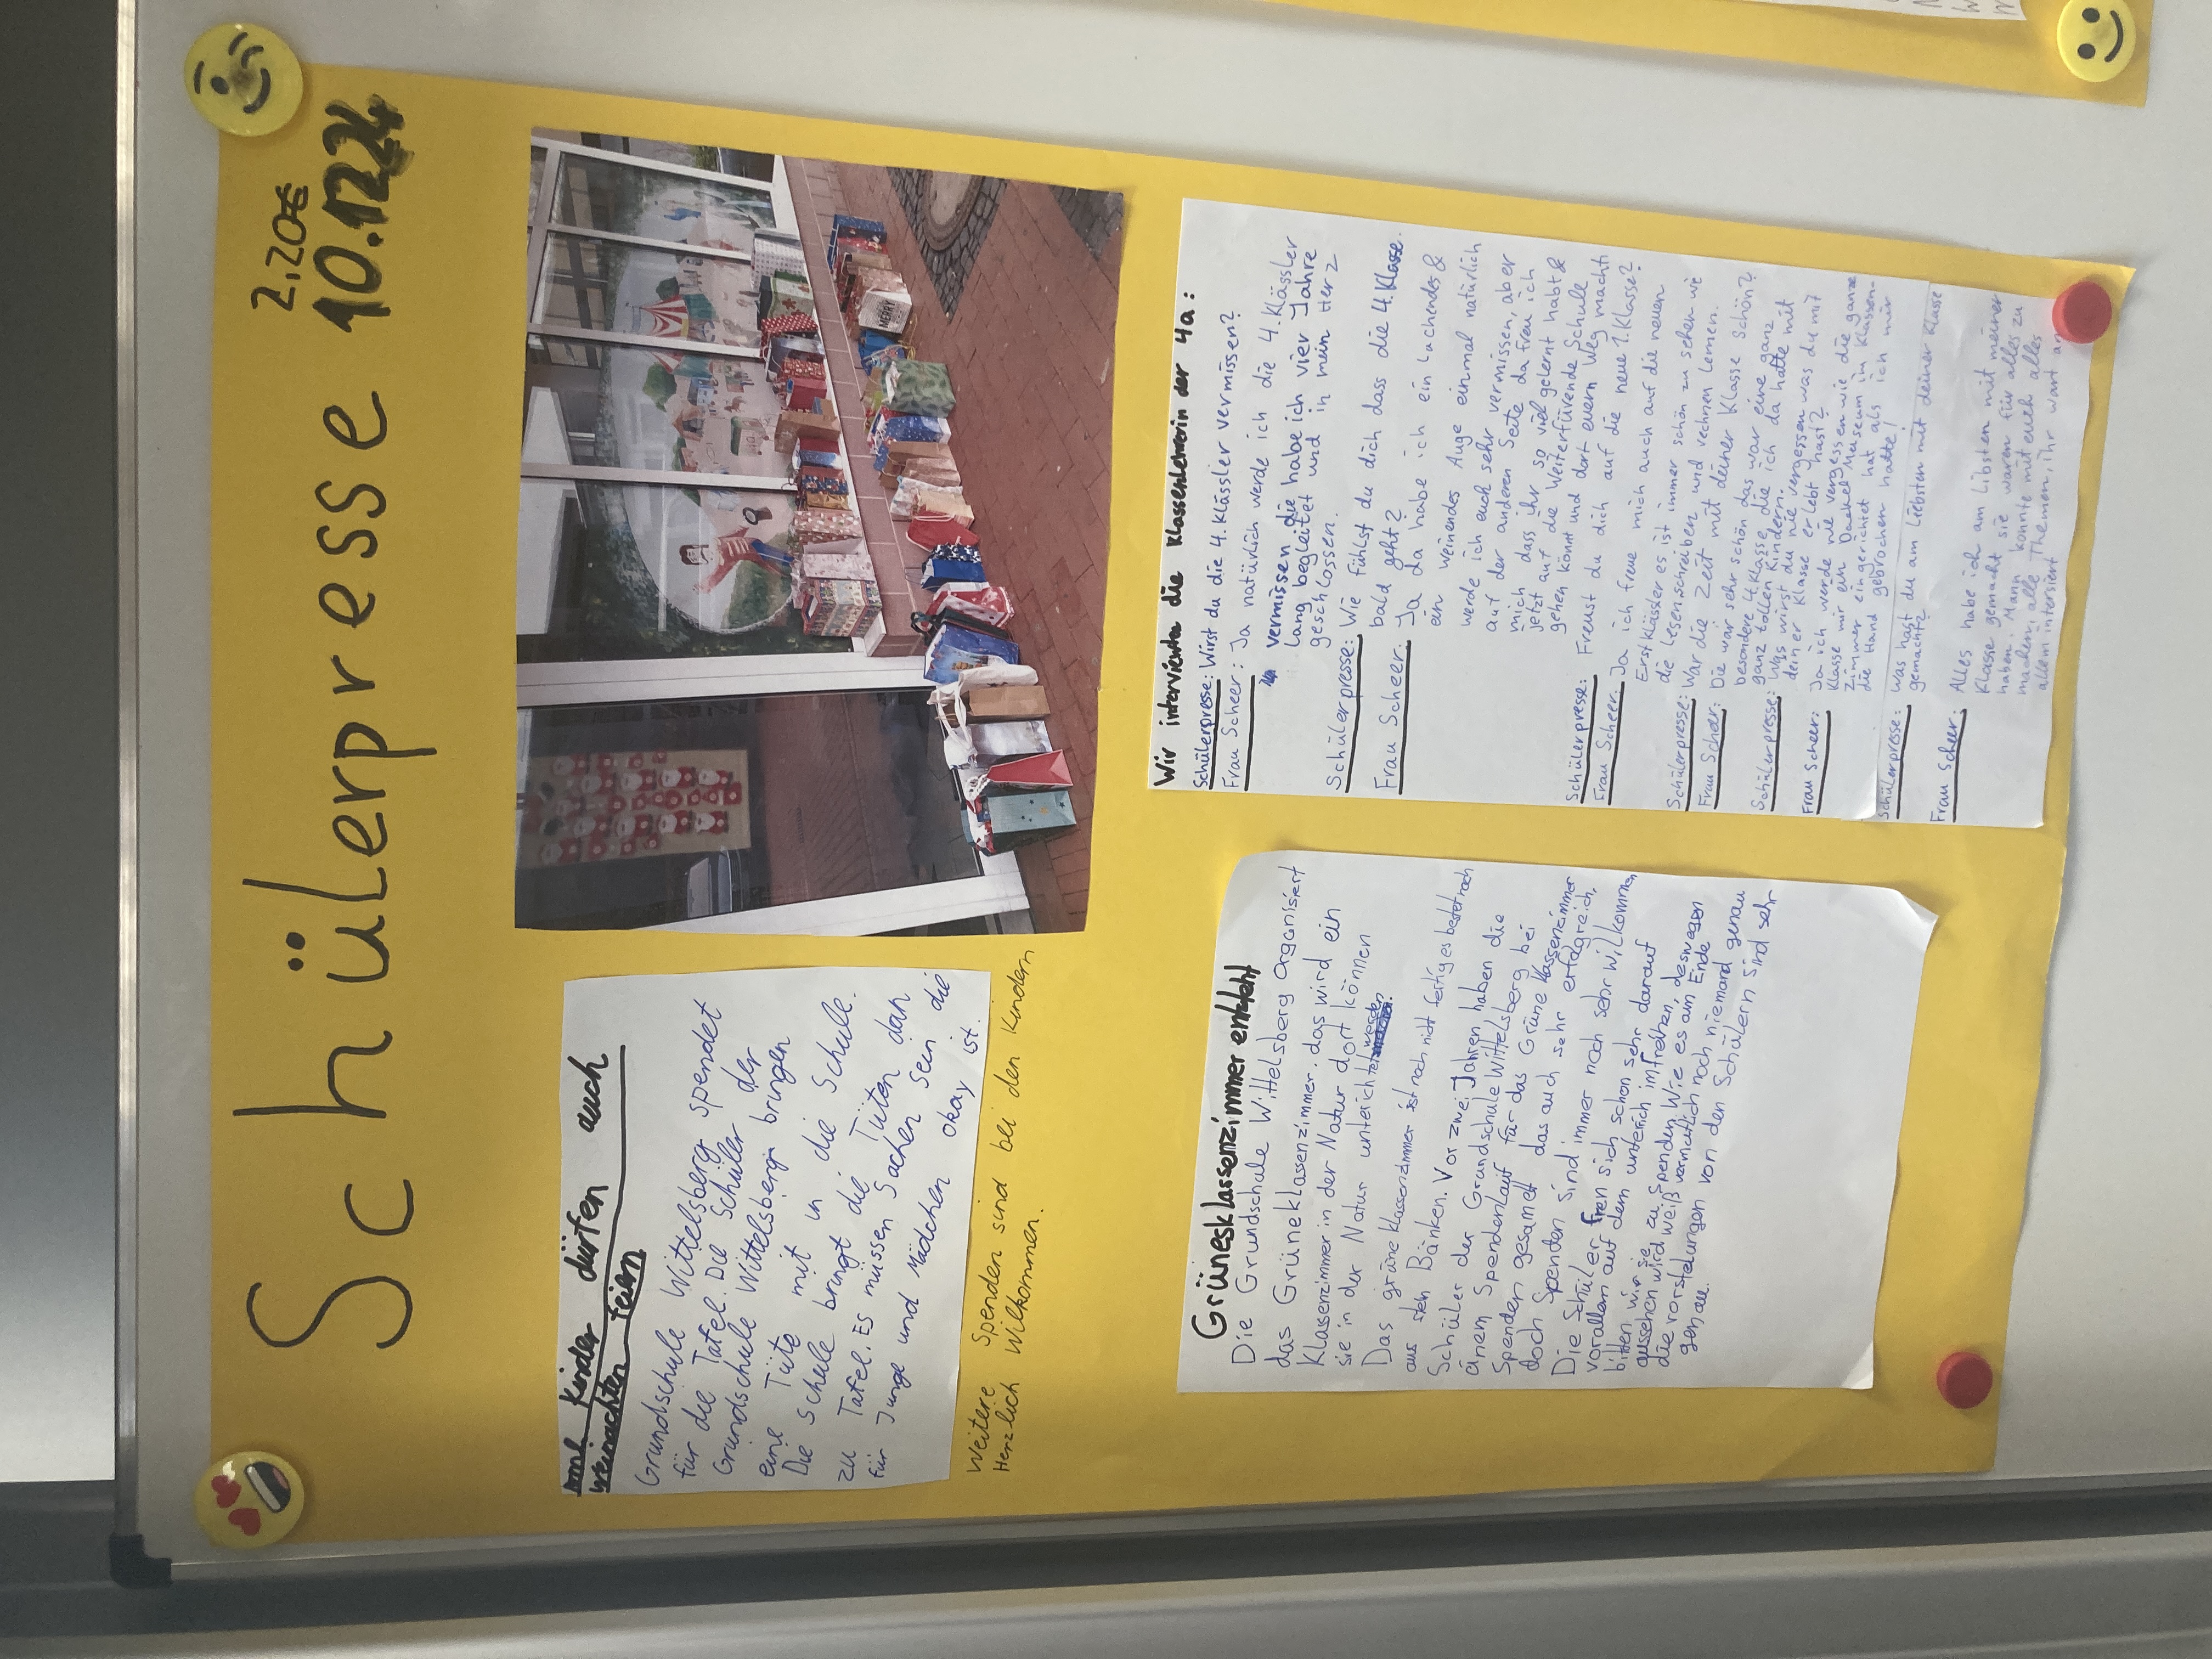 Schülerpresse
2,20€
10.12.24
Kinder dürfen auch
weinachten feiern
Grundschule Wittelsberg spendet
für die Tafel. Die Schüler der
Grundschule Wittelsberg bringen
eine Tüte mit in die Schule.
Die Schule bringt die Tüten dan
zu Tafel. Es müssen Sachen sein die
für Junge und Mädchen okay ist.
Weitere Spenden sind bei den Kindern
Herzlich Wilkommen.
MERRY
Grünesklassenzimmer entsteht
Die Grundschule Wittelsberg organisiert
das Grüneklassenzimmer. das wird ein
Klassenzimmer in der Natur dort können
sie in der Natur unterichtet werden.
Das grüne Klassenzimmer ist noch nicht fertig es bestet noch
aus sechs Bänken. Vor zwei Jahren haben die
Schüler der Grundschule Wittelsberg bei
einem Spendenlauf für das Grüne Klassenzimmer
Spenden gesamelt das auch sehr erfolgreich,
doch Spenden sind immer noch sehr wilkommen
Die Schüler freen sich schon sehr darauf
vorallem auf dem unterich im freihen, deswegen
bitten wir sie zu spenden. Wie es am Ende
aussehen wird weiß vermutlich noch niemand genau
die vorstelungen von den Schülern sind sehr
genau.
Wir interviewten die Klassenlehrerin der 4a:
Schülerpresse: Wirst du die 4. Klässler vermissen?
Frau Scheer: Ja natürlich werde ich die 4. Klässler
vermissen die habe ich vier Jahre
lang begleitet und in mein Herz
geschlossen.
Schülerpresse: Wie fühlst du dich dass die 4. Klasse
bald geht?
Frau Scheer: Ja da habe ich ein lachendes &
ein weinendes Auge einmal natürlich
werde ich euch sehr vermissen, aber
auf der anderen Seite da freu ich
mich dass ihr so viel gelernt habt &
jetzt auf die Weiterfürende Schule
gehen könnt und dort euren Weg macht
Schülerpresse: Freust du dich auf die neue 1. Klasse?
Frau Scheer: Ja ich freue mich auch auf die neuen
Erstklässler es ist immer schön zu sehen wie
die lesen schreiben und rechnen lernen.
Schülerpresse: War die Zeit mit deiner Klasse schön?
Frau Scheer: Die war sehr schön das war eine ganz
besondere 4. Klasse die ich da hatte mit
ganz tollen Kindern.
Schülerpresse: Was wirst du nie vergessen was du mit
deiner Klasse erlebt hast?
Frau Scheer: Ja ich werde nie vergessen wie die ganze
Klasse mir ein Dackel Museum im Klassen-
zimmer eingerichtet hat als ich mir
die Hand gebrochen hatte!
Schülerpresse: Was hast du am Liebsten mit deiner Klasse
gemacht?
Frau Scheer: Alles habe ich am Libsten mit meiner
Klasse gemacht sie waren für alles zu
haben. Mann konnte mit euch alles
machen, alle Themen, ihr wart an
allem intersiert